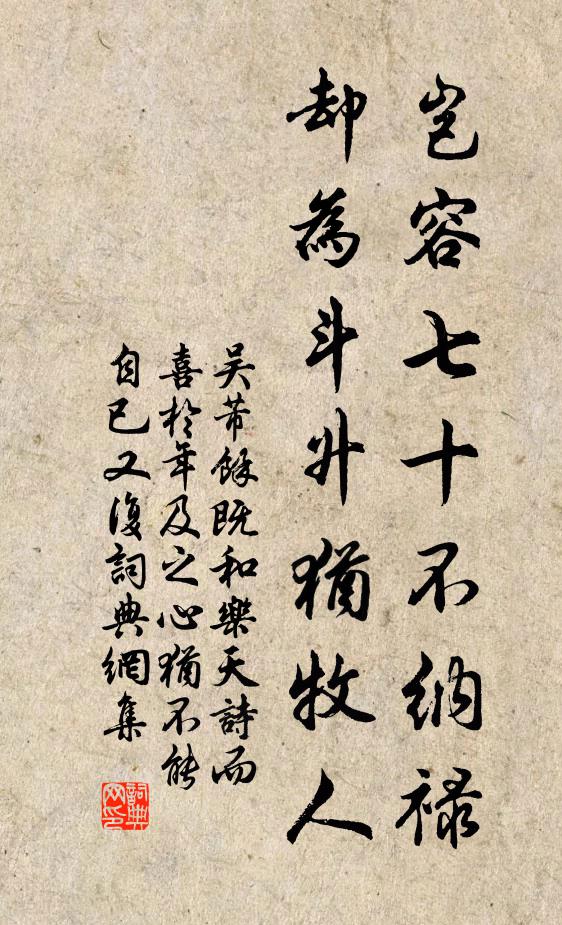 豈容七十不納祿
却為斗升猶牧人
吳芾餘既和樂天詩而
喜於年及之心猶不能
自已又復詞典網集
詞典
网印